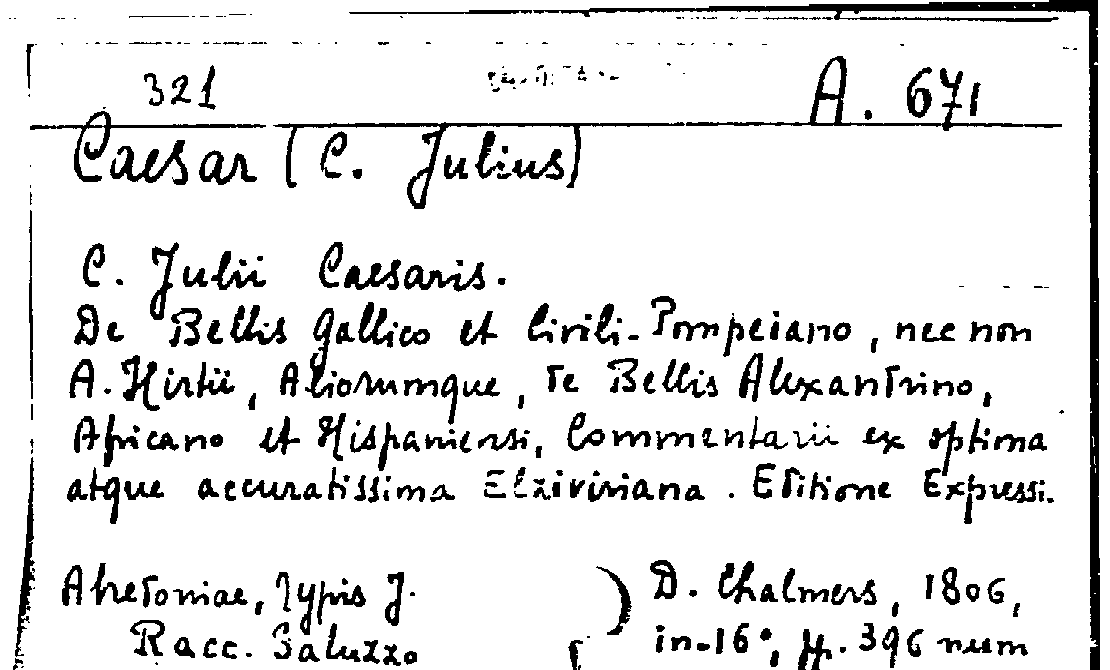 321 A. 671
Caesar (C. Julius)
C. Julii Caesaris.
De Bellis Gallico et Civili-Pompeiano, nec non
A. Hirtii, Aliorumque, de Bellis Alexandrino,
Africano et Hispaniensi, Commentarii ex optima
atque accuratissima Elziviriana. Editione Expressi.
Abredoniae, Typis J. ) D. Chalmers, 1806,
Racc. Saluzzo ( in-16°, pp. 396 num